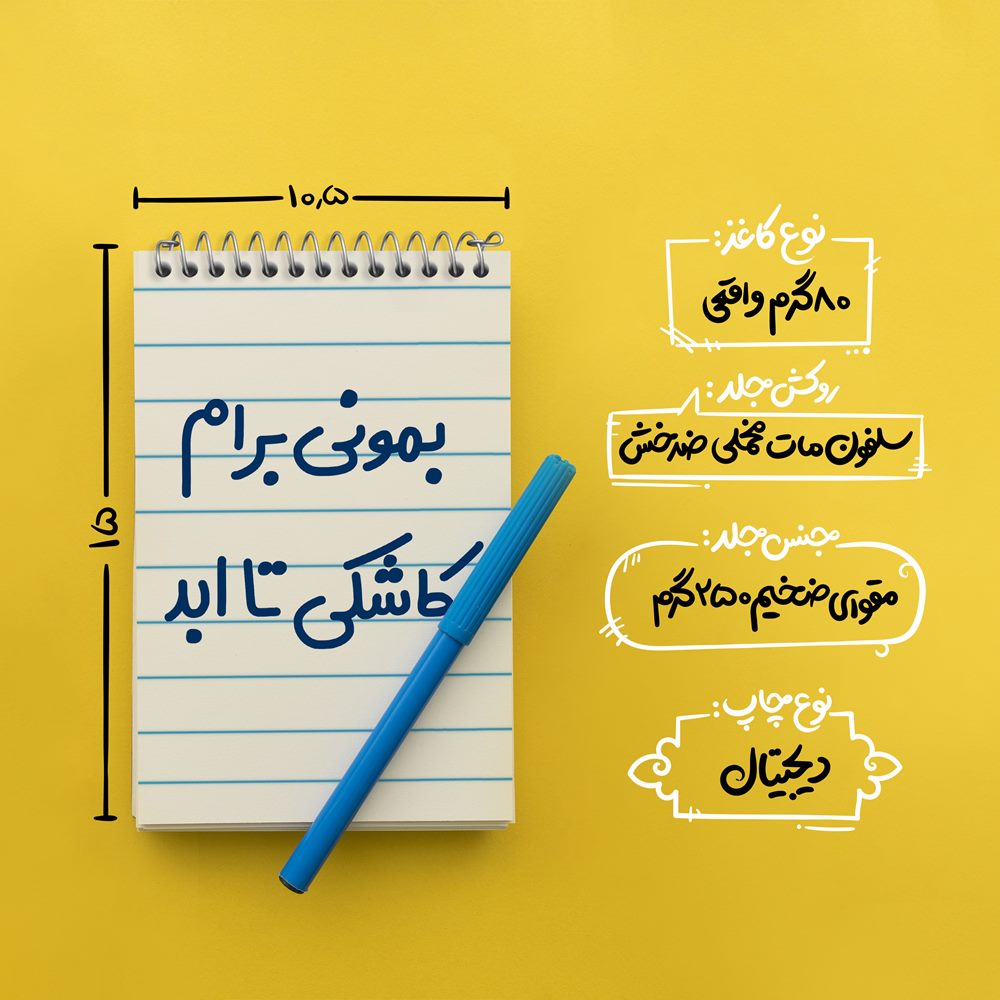 ۱۰٫۵
۱۵
بمونی برام
کاشکی تا ابد
نوع کاغذ:
۸۰گرم واقعی
روکش جلد:
سلفون مات مخملی ضدخش
جنس جلد:
مقوای ضخیم ۲۵۰گرم
نوع چاپ:
دیجیتال